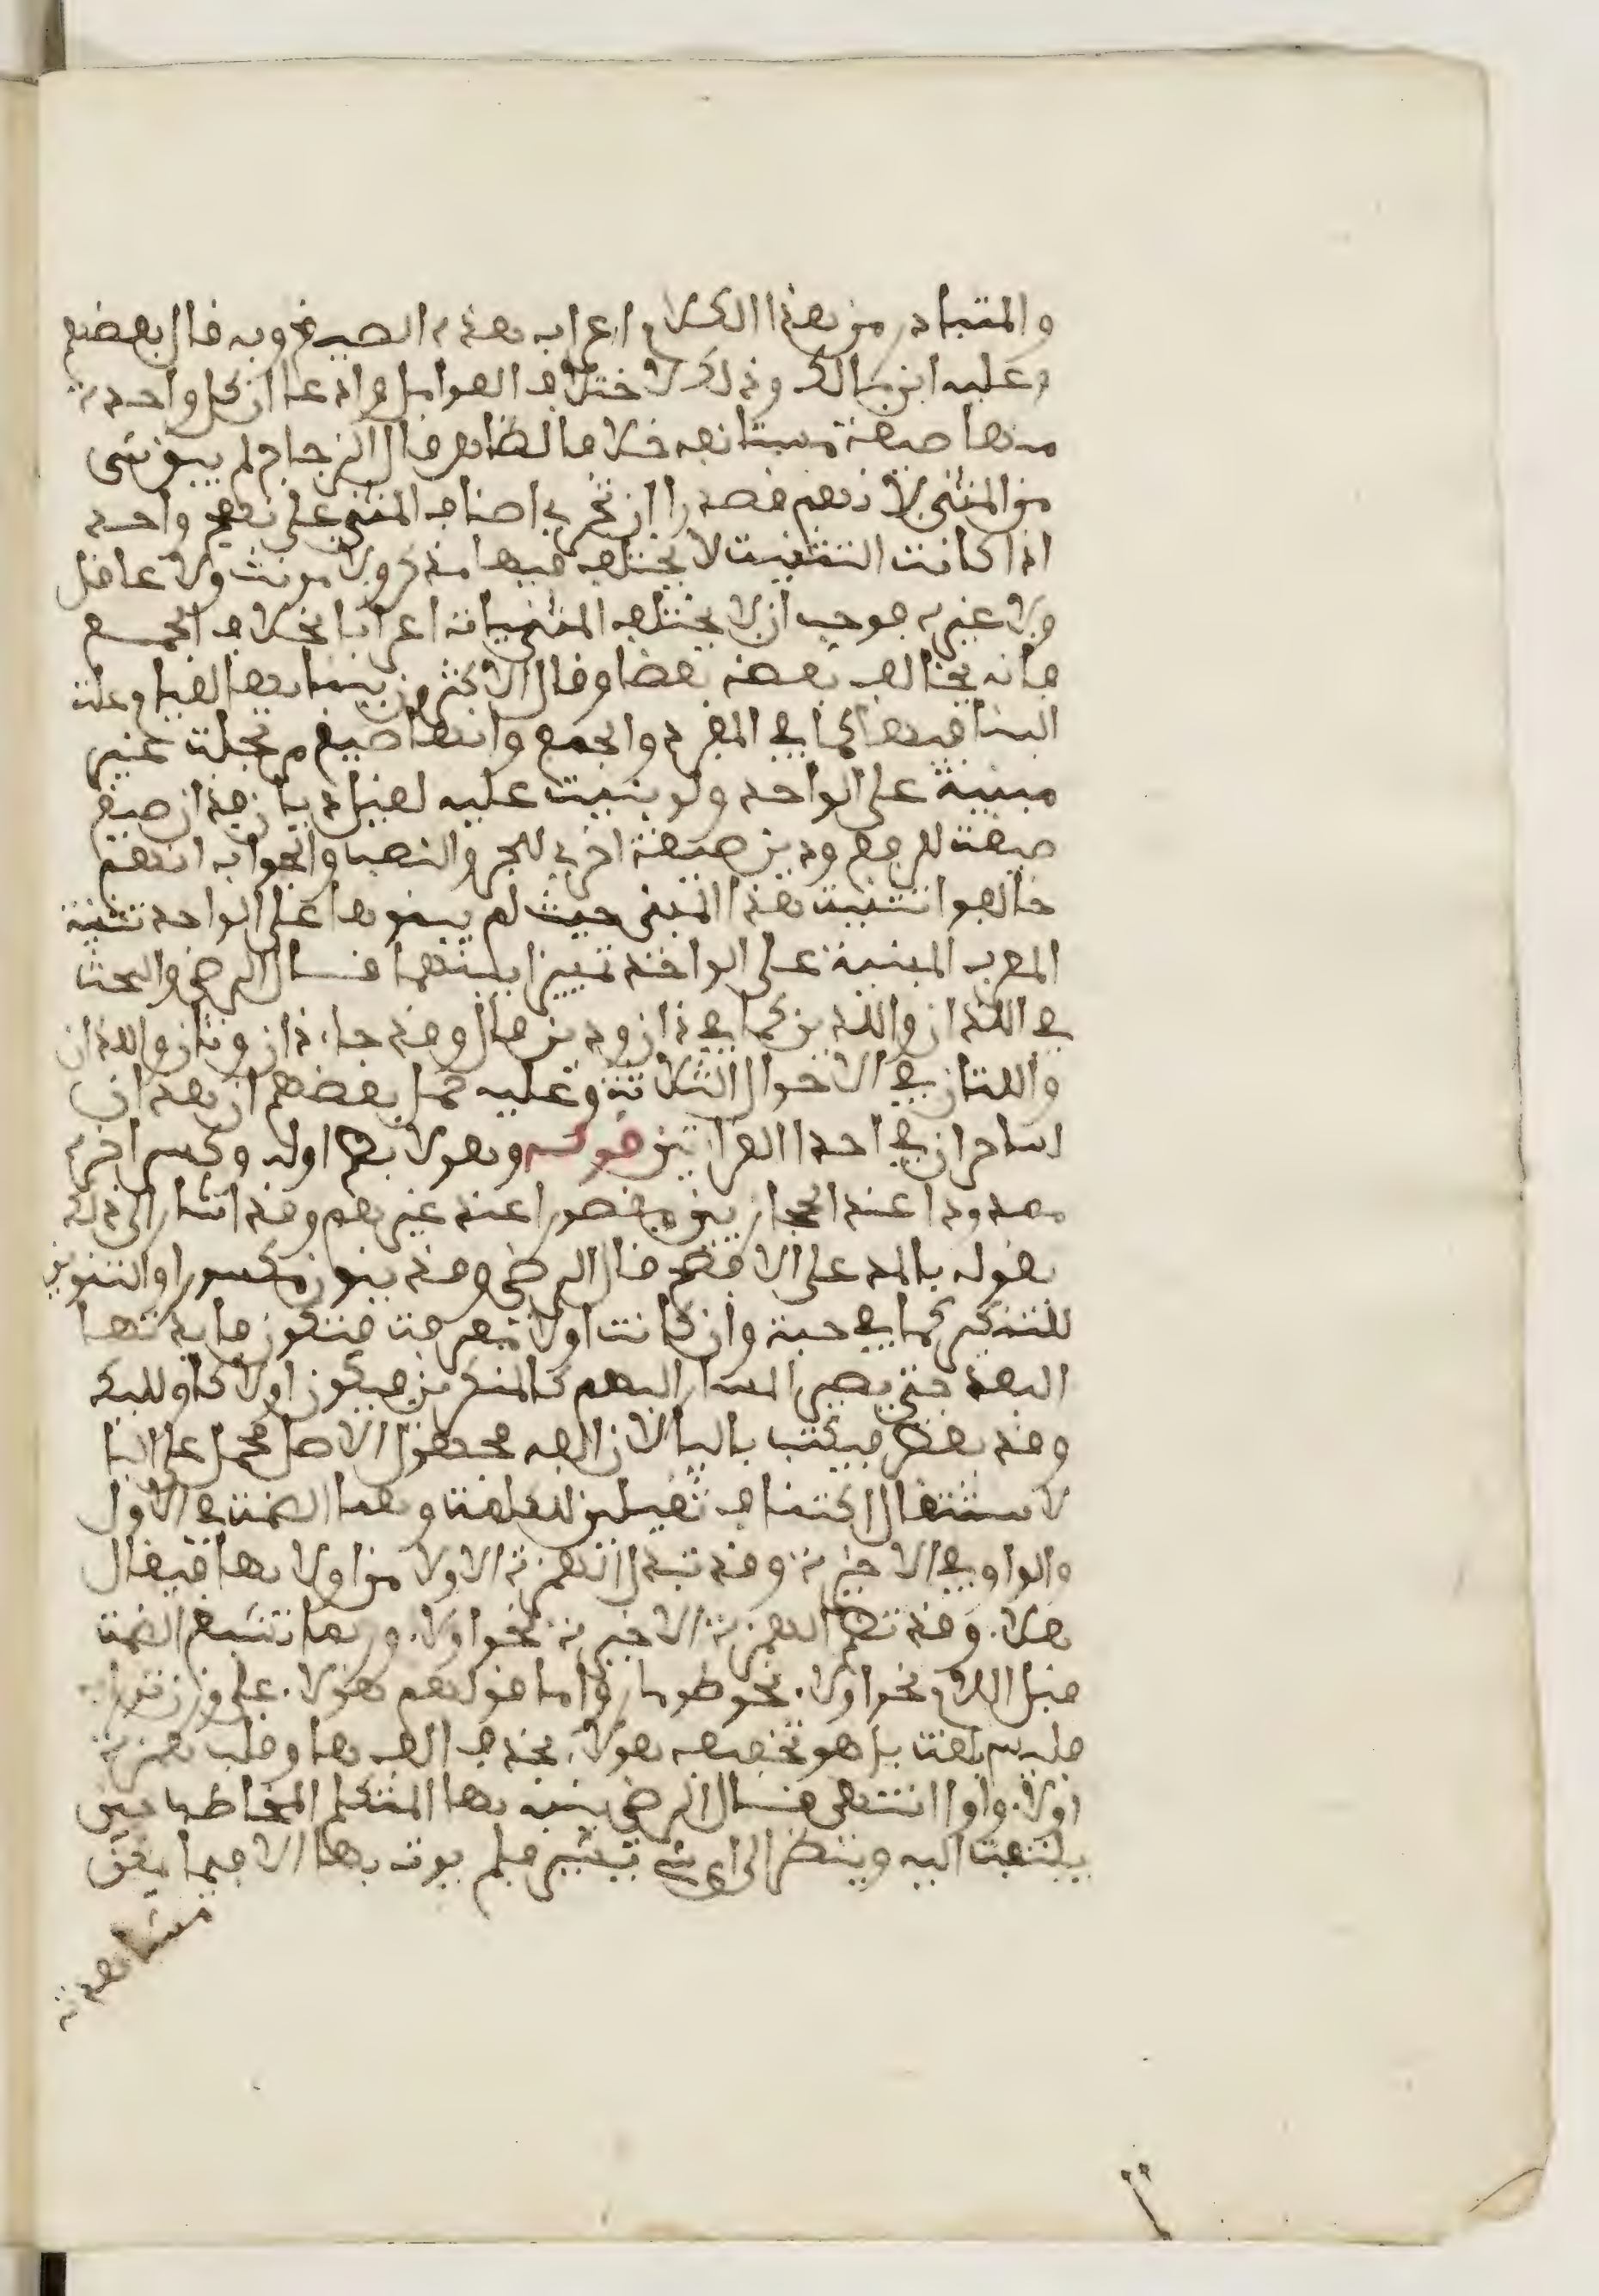 والمتبادر من هذا الكلام اعراب هذه الصيغ وبه قال بعضهم
وعليه ابن مالك وذلك لاختلاف العوامل وادعا ان كل واحدة
منها صيغة مستانفه خلاف الظاهر قال الزجاج لم يبن شي
من المثنى لانهم قصدوا ان تجري اصناف المثنى على نهج واحد
اذا كانت التثنيت لا يختلف فيها مذكر ولا مونث ولا عاقل
ولا غيره فوجب ان لا يختلف المثنيات اعرابا بخلاف الجمع
فانه يخالف بعضه بعضا وقال الاكثرون بينا لقيام علت
البنا فيها كما في المفرد والجمع وانها صيغ مرتجلت غير
مبنية على الواحد ولو بنيت عليه لقيل ذيان فذان صيغ
صيغت للرفع وذين صيغة اخرى للجر والنصب والجواب انهم
خالفوا تثنيت هذا المبني حيث لم يبنوها على الواحد تثنية
المعرب المبنية على الواحد تمييزا بينهما قال الرضي والبحث
في اللذان واللذين كما في ذان وذين قال وقد جاء ذان وتان واللذان
واللتان في الاحوال الثلاثة وعليه حمل بعضهم ان هذان
لساحران في احدا القراتين قوله وهولا بضم اوله وكسر اخره
ممدودا عند الحجازيين مقصورا عند غيرهم وقد اشار الى ذلك
بقوله بالمد على الافصح قال الرضي وقد ينون مكسورا والتنوين
للتنكير كما في صه وان كانت اولا معرفت فتكون فايدتها
البعد حتى يصير المشار اليهم كالمنكرين فيكون اولا كاوليك
وقد يقصر فيكتب باليا لان الفه مجهول الاصل فحمل على اليا
لاستثقال اكتناف ثقيلين للكلمت وهما الضمت في الاول
والواو في الاخيرة وقد تبدل الهمزة الاولا من اولا بها فيقال
هلاء وقد تضم الهمزة الاخيرة نحو اولاء وربما تشبع الضمت
قبل اللام نحو اولاء نحو طومار واما قولهم هولاء على وزن توراب
فليس بلغت بل هو تخفيف هولاء بحذف الف ها وقلب همزة
اولاء واوا انتهى قال الرضي ينبه بها المتكلم المخاطب حتى
يلتفت اليه وينظر الى اي شي يشير فلم يوت بها الا فيما يمكن
مشاهدته